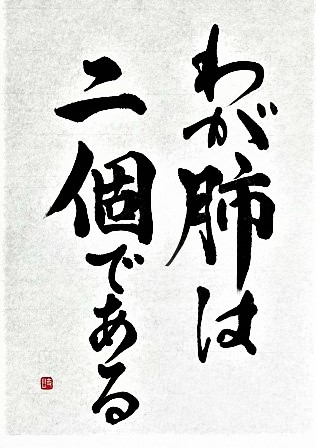 わが肺は
二個である